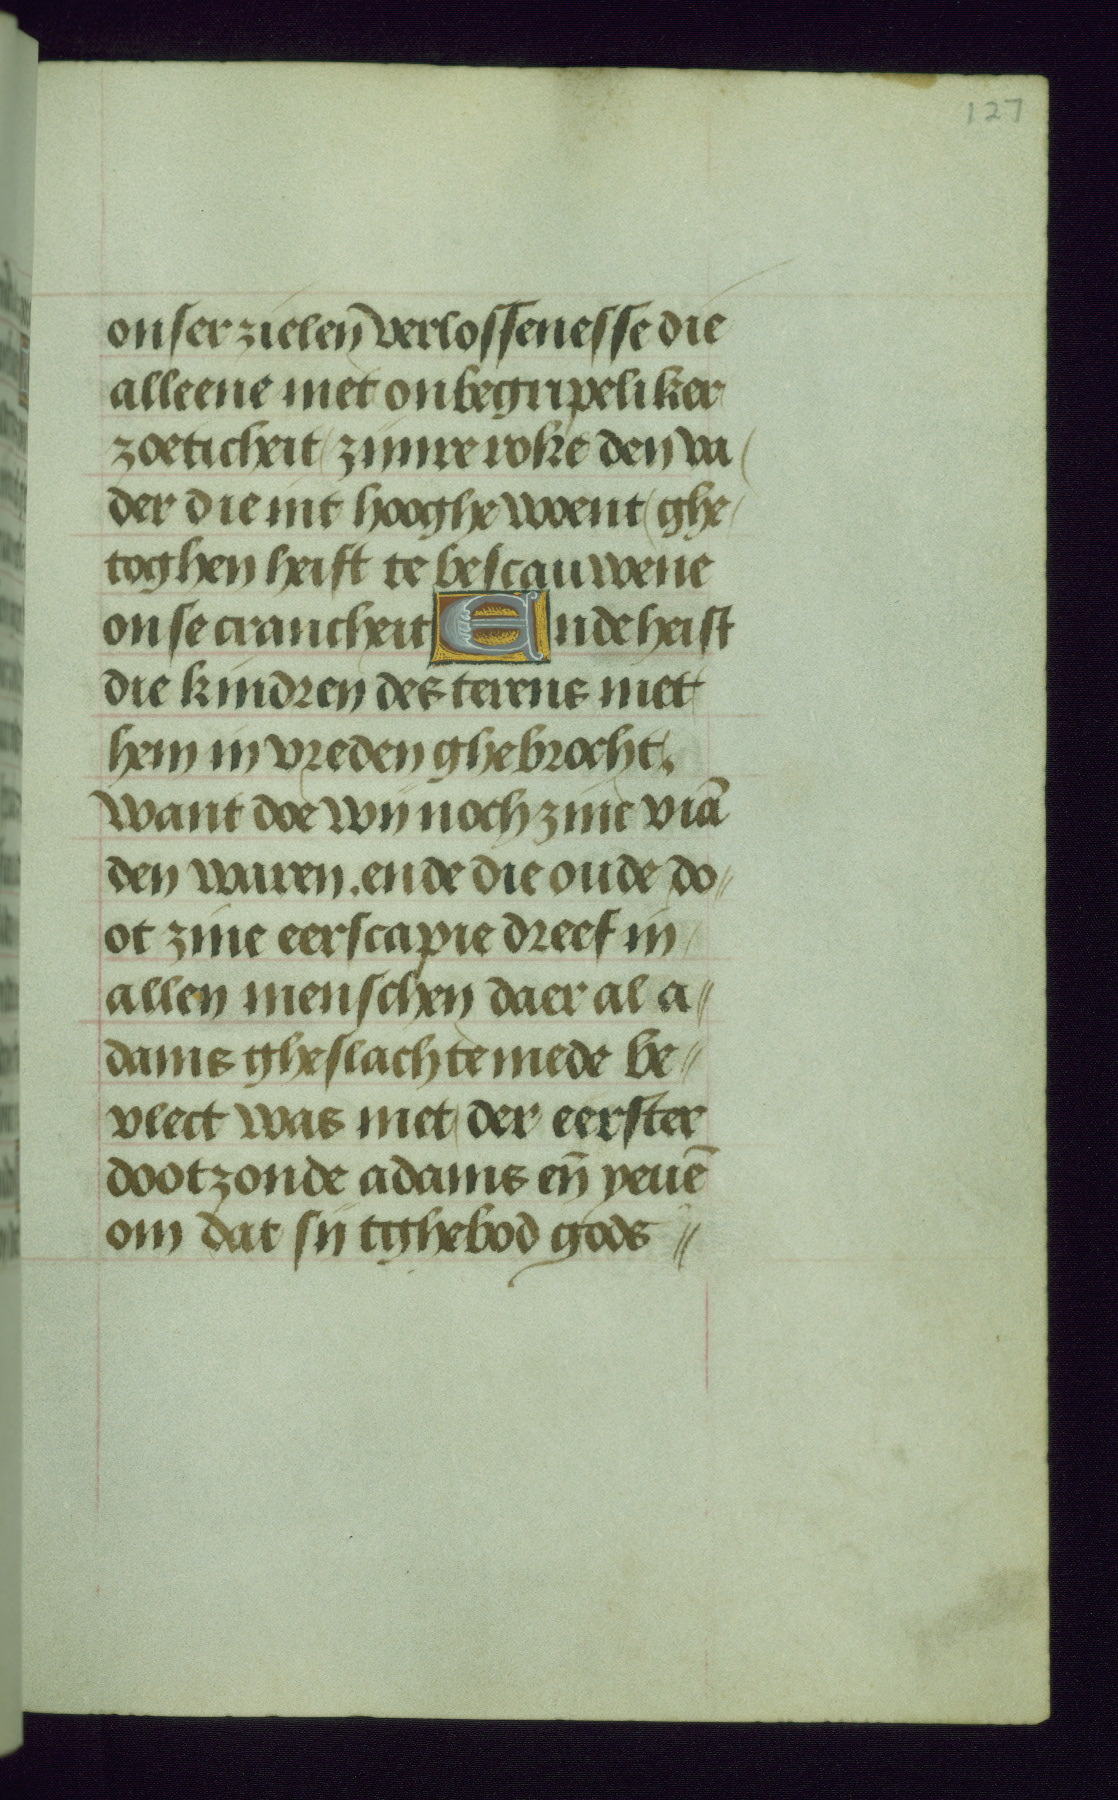 127
onser zielen verlossenesse die
alleene met onbegripeliker
zoeticheit zijnre roke den va
der die int hooghe woent ghe
toghen heift te bescauwene
onse crancheit Ende heift
die kindren des torens met
hem in vreden ghebrocht.
Want doe wij noch zine viā
den waren. ende die oude do
ot zine eerscapie dreef in
allen menschen daer al a
dams gheslachte mede be
vlect was met der eerster
dootzonde adams eñ yeuē
om dat sij tghebod gods